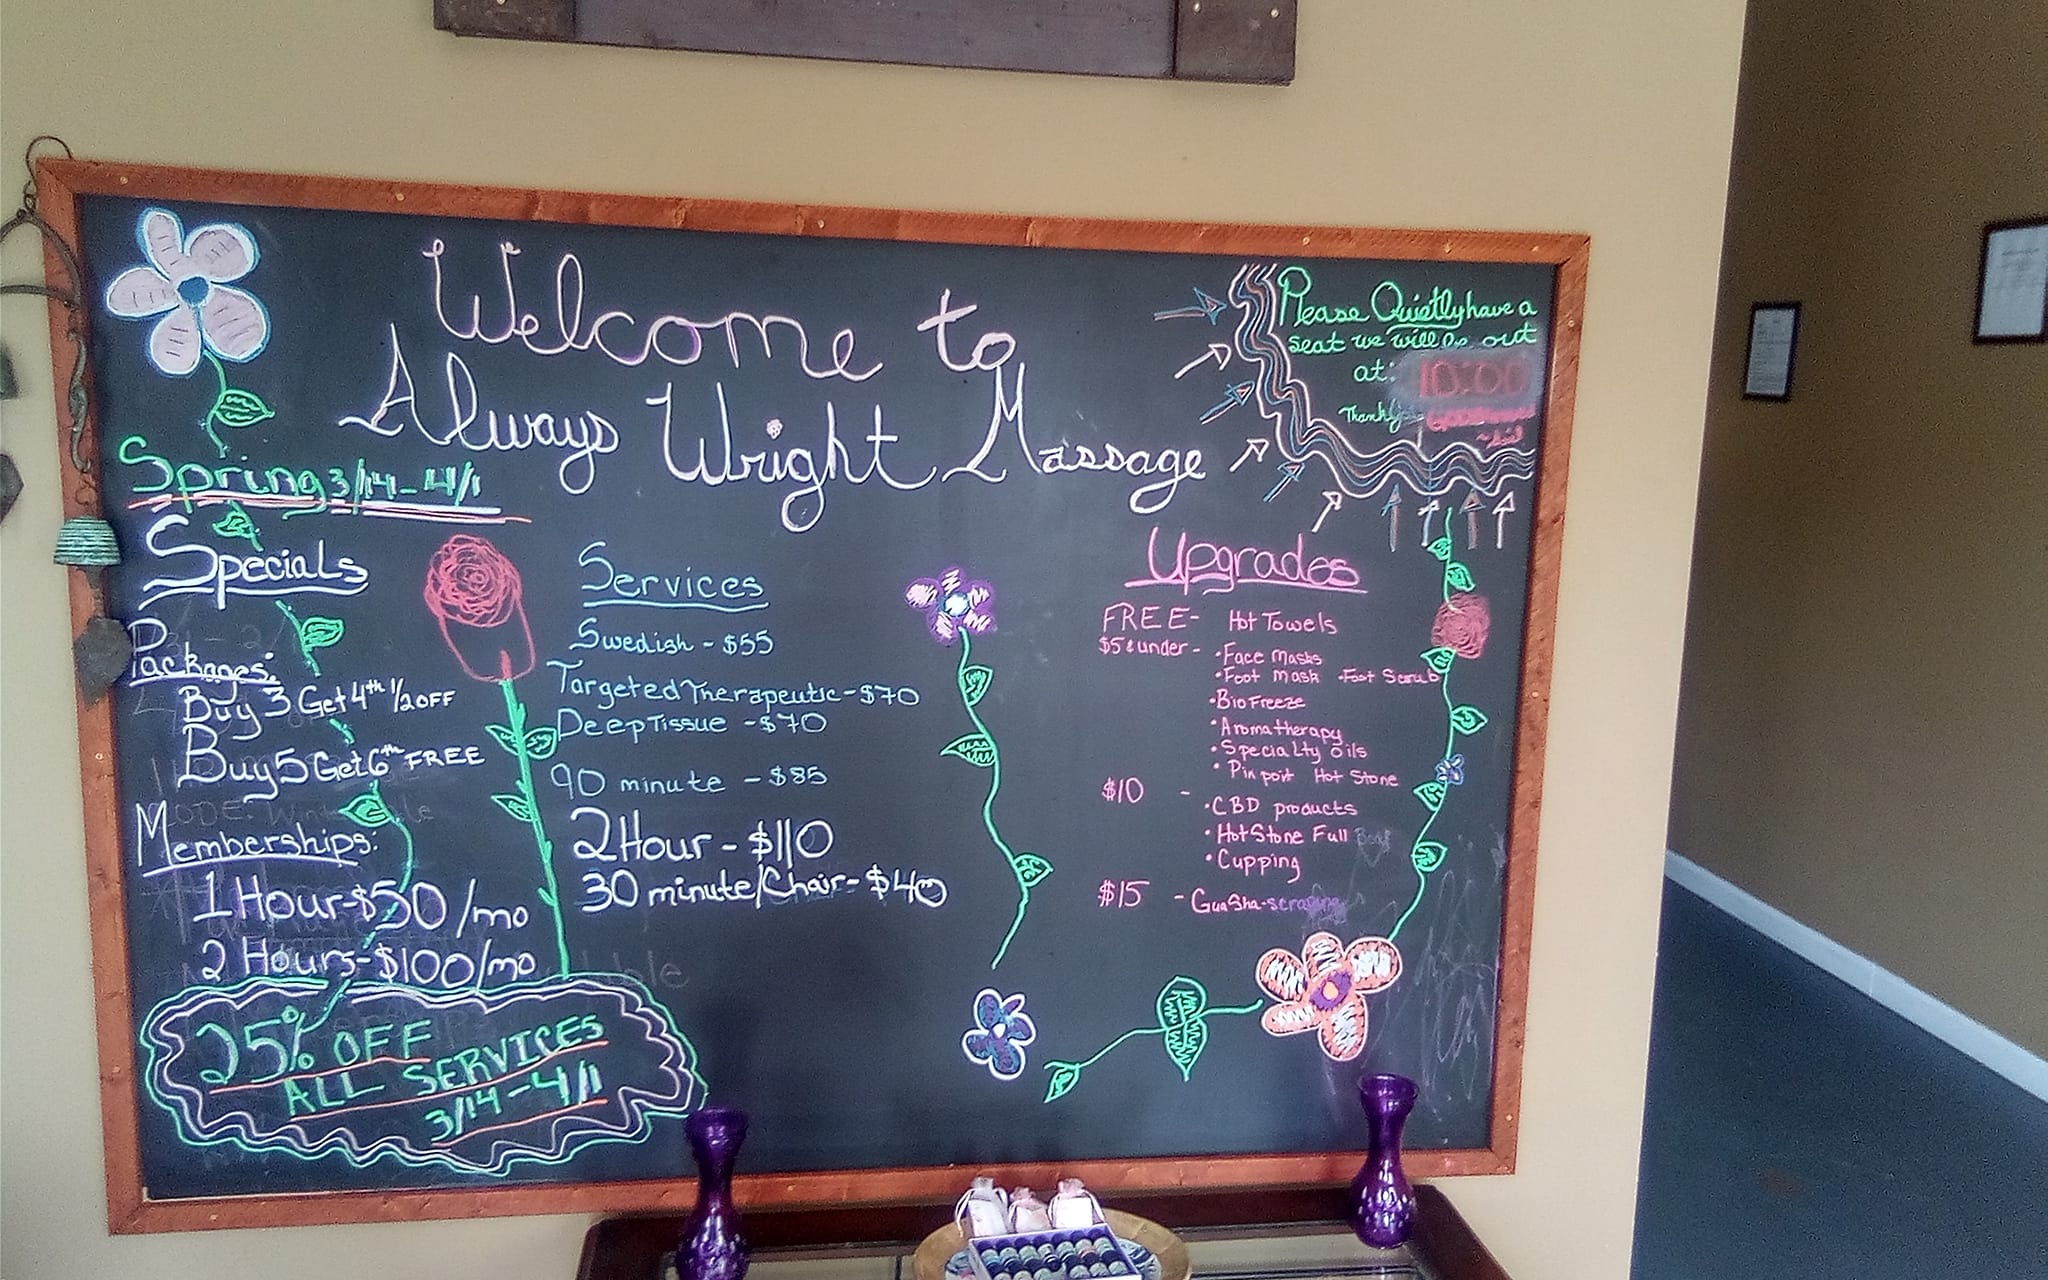 Welcome to
Always Wright Massage
Please Quietly have a
seat we will be out
at: 10:00
Spring 3/14-4/1
Specials
Packages:
Buy 3 Get 4th 1/2 OFF
Buy 5 Get 6th FREE
Memberships:
1 Hour-$50/mo
2 Hours-$100/mo
25% OFF
ALL SERVICES
3/14-4/1
Services
Swedish - $55
Targeted Therapeutic - $70
Deep Tissue - $70
90 minute - $85
2 Hour - $110
30 minute/Chair - $40
Upgrades
FREE- Hot Towels
$5 & under - • Face Masks
• Foot Mask • Foot Scrub
• BioFreeze
• Aromatherapy
• Specialty Oils
• Pin point Hot Stone
$10 - • CBD products
• Hot Stone Full
• Cupping
$15 - GuaSha-scraping